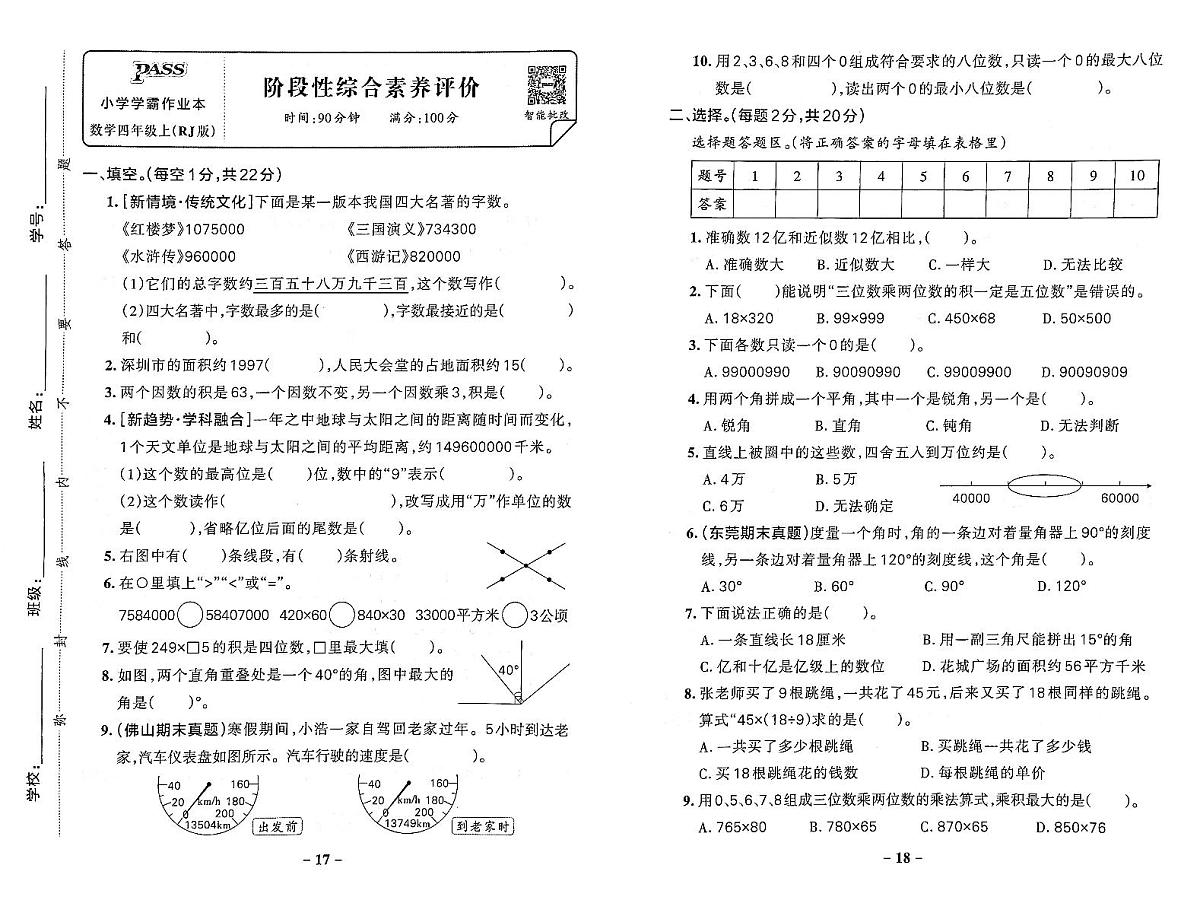 PASS
小学学霸作业本
数学四年级上(RJ版)
阶段性综合素养评价
时间:90分钟 满分:100分
智能批改
学号:
姓名:
班级:
学校:
题
答
要
不
内
线
封
弥
一、填空。(每空1分,共22分)
1.[新情境·传统文化]下面是某一版本我国四大名著的字数。
《红楼梦》1075000 《三国演义》734300
《水浒传》960000 《西游记》820000
(1)它们的总字数约三百五十八万九千三百,这个数写作( )。
(2)四大名著中,字数最多的是( ),字数最接近的是( )
和( )。
2.深圳市的面积约1997( ),人民大会堂的占地面积约15( )。
3.两个因数的积是63,一个因数不变,另一个因数乘3,积是( )。
4.[新趋势·学科融合]一年之中地球与太阳之间的距离随时间而变化,
1个天文单位是地球与太阳之间的平均距离,约149600000千米。
(1)这个数的最高位是( )位,数中的“9”表示( )。
(2)这个数读作( ),改写成用“万”作单位的数
是( ),省略亿位后面的尾数是( )。
5.右图中有( )条线段,有( )条射线。
6.在○里填上“>”“<”或“=”。
7584000○58407000 420×60○840×30 33000平方米○3公顷
7.要使249×□5的积是四位数,□里最大填( )。
8.如图,两个直角重叠处是一个40°的角,图中最大的
角是( )°。
40°
9.(佛山期末真题)寒假期间,小浩一家自驾回老家过年。5小时到达老
家,汽车仪表盘如图所示。汽车行驶的速度是( )。
40 160
20 km/h 180
0 200
13504km
出发前
40 160
20 km/h 180
0 200
13749km
到老家时
- 17 -
10.用2、3、6、8和四个0组成符合要求的八位数,只读一个0的最大八位
数是( ),读出两个0的最小八位数是( )。
二、选择。(每题2分,共20分)
选择题答题区。(将正确答案的字母填在表格里)
题号 1 2 3 4 5 6 7 8 9 10
答案
1.准确数12亿和近似数12亿相比,( )。
A.准确数大 B.近似数大 C.一样大 D.无法比较
2.下面( )能说明“三位数乘两位数的积一定是五位数”是错误的。
A.18×320 B.99×999 C.450×68 D.50×500
3.下面各数只读一个0的是( )。
A.99000990 B.90090990 C.99009900 D.90090909
4.用两个角拼成一个平角,其中一个是锐角,另一个是( )。
A.锐角 B.直角 C.钝角 D.无法判断
5.直线上被圈中的这些数,四舍五入到万位约是( )。
A.4万 B.5万
C.6万 D.无法确定
40000 60000
6.(东莞期末真题)度量一个角时,角的一条边对着量角器上90°的刻度
线,另一条边对着量角器上120°的刻度线,这个角是( )。
A.30° B.60° C.90° D.120°
7.下面说法正确的是( )。
A.一条直线长18厘米 B.用一副三角尺能拼出15°的角
C.亿和十亿是亿级上的数位 D.花城广场的面积约56平方千米
8.张老师买了9根跳绳,一共花了45元,后来又买了18根同样的跳绳。
算式“45×(18÷9)求的是( )。
A.一共买了多少根跳绳 B.买跳绳一共花了多少钱
C.买18根跳绳花的钱数 D.每根跳绳的单价
9.用0、5、6、7、8组成三位数乘两位数的乘法算式,乘积最大的是( )。
A.765×80 B.780×65 C.870×65 D.850×76
- 18 -